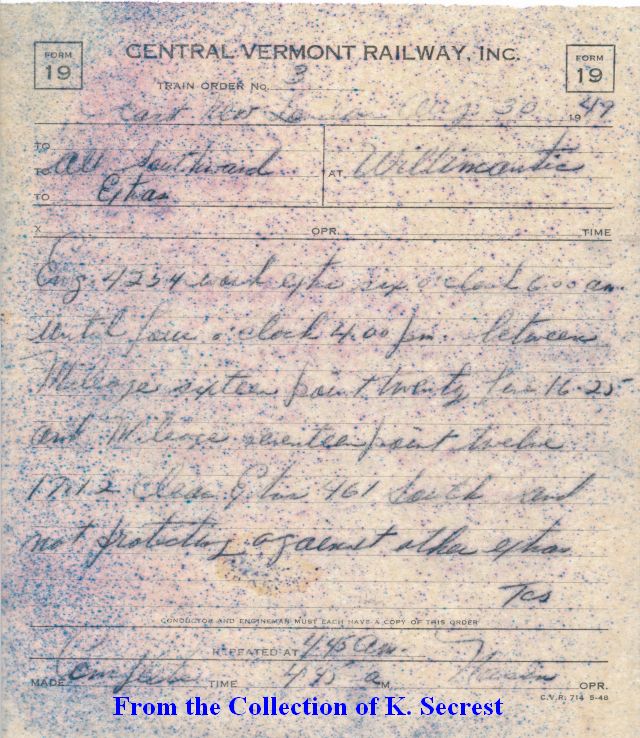 FORM 19
CENTRAL VERMONT RAILWAY, INC.
FORM 19
TRAIN ORDER No. 3
East New London Aug 30 1949
TO
TO All Southward
TO Extras
AT Willimantic
X OPR. TIME
Eng 4234 work extra six o'clock 6:00 am
until four o'clock 4.00 pm. between
Mileage sixteen point twenty five 16-25
and Mileage seventeen point twelve
17.12 clear Extra 461 South and
not protecting against other extras
CONDUCTOR AND ENGINEMAN MUST EACH HAVE A COPY OF THIS ORDER
REPEATED AT 4:45 am.
MADE Complete TIME M OPR.
C.V.R. 714 5-48
From the Collection of K. Secrest